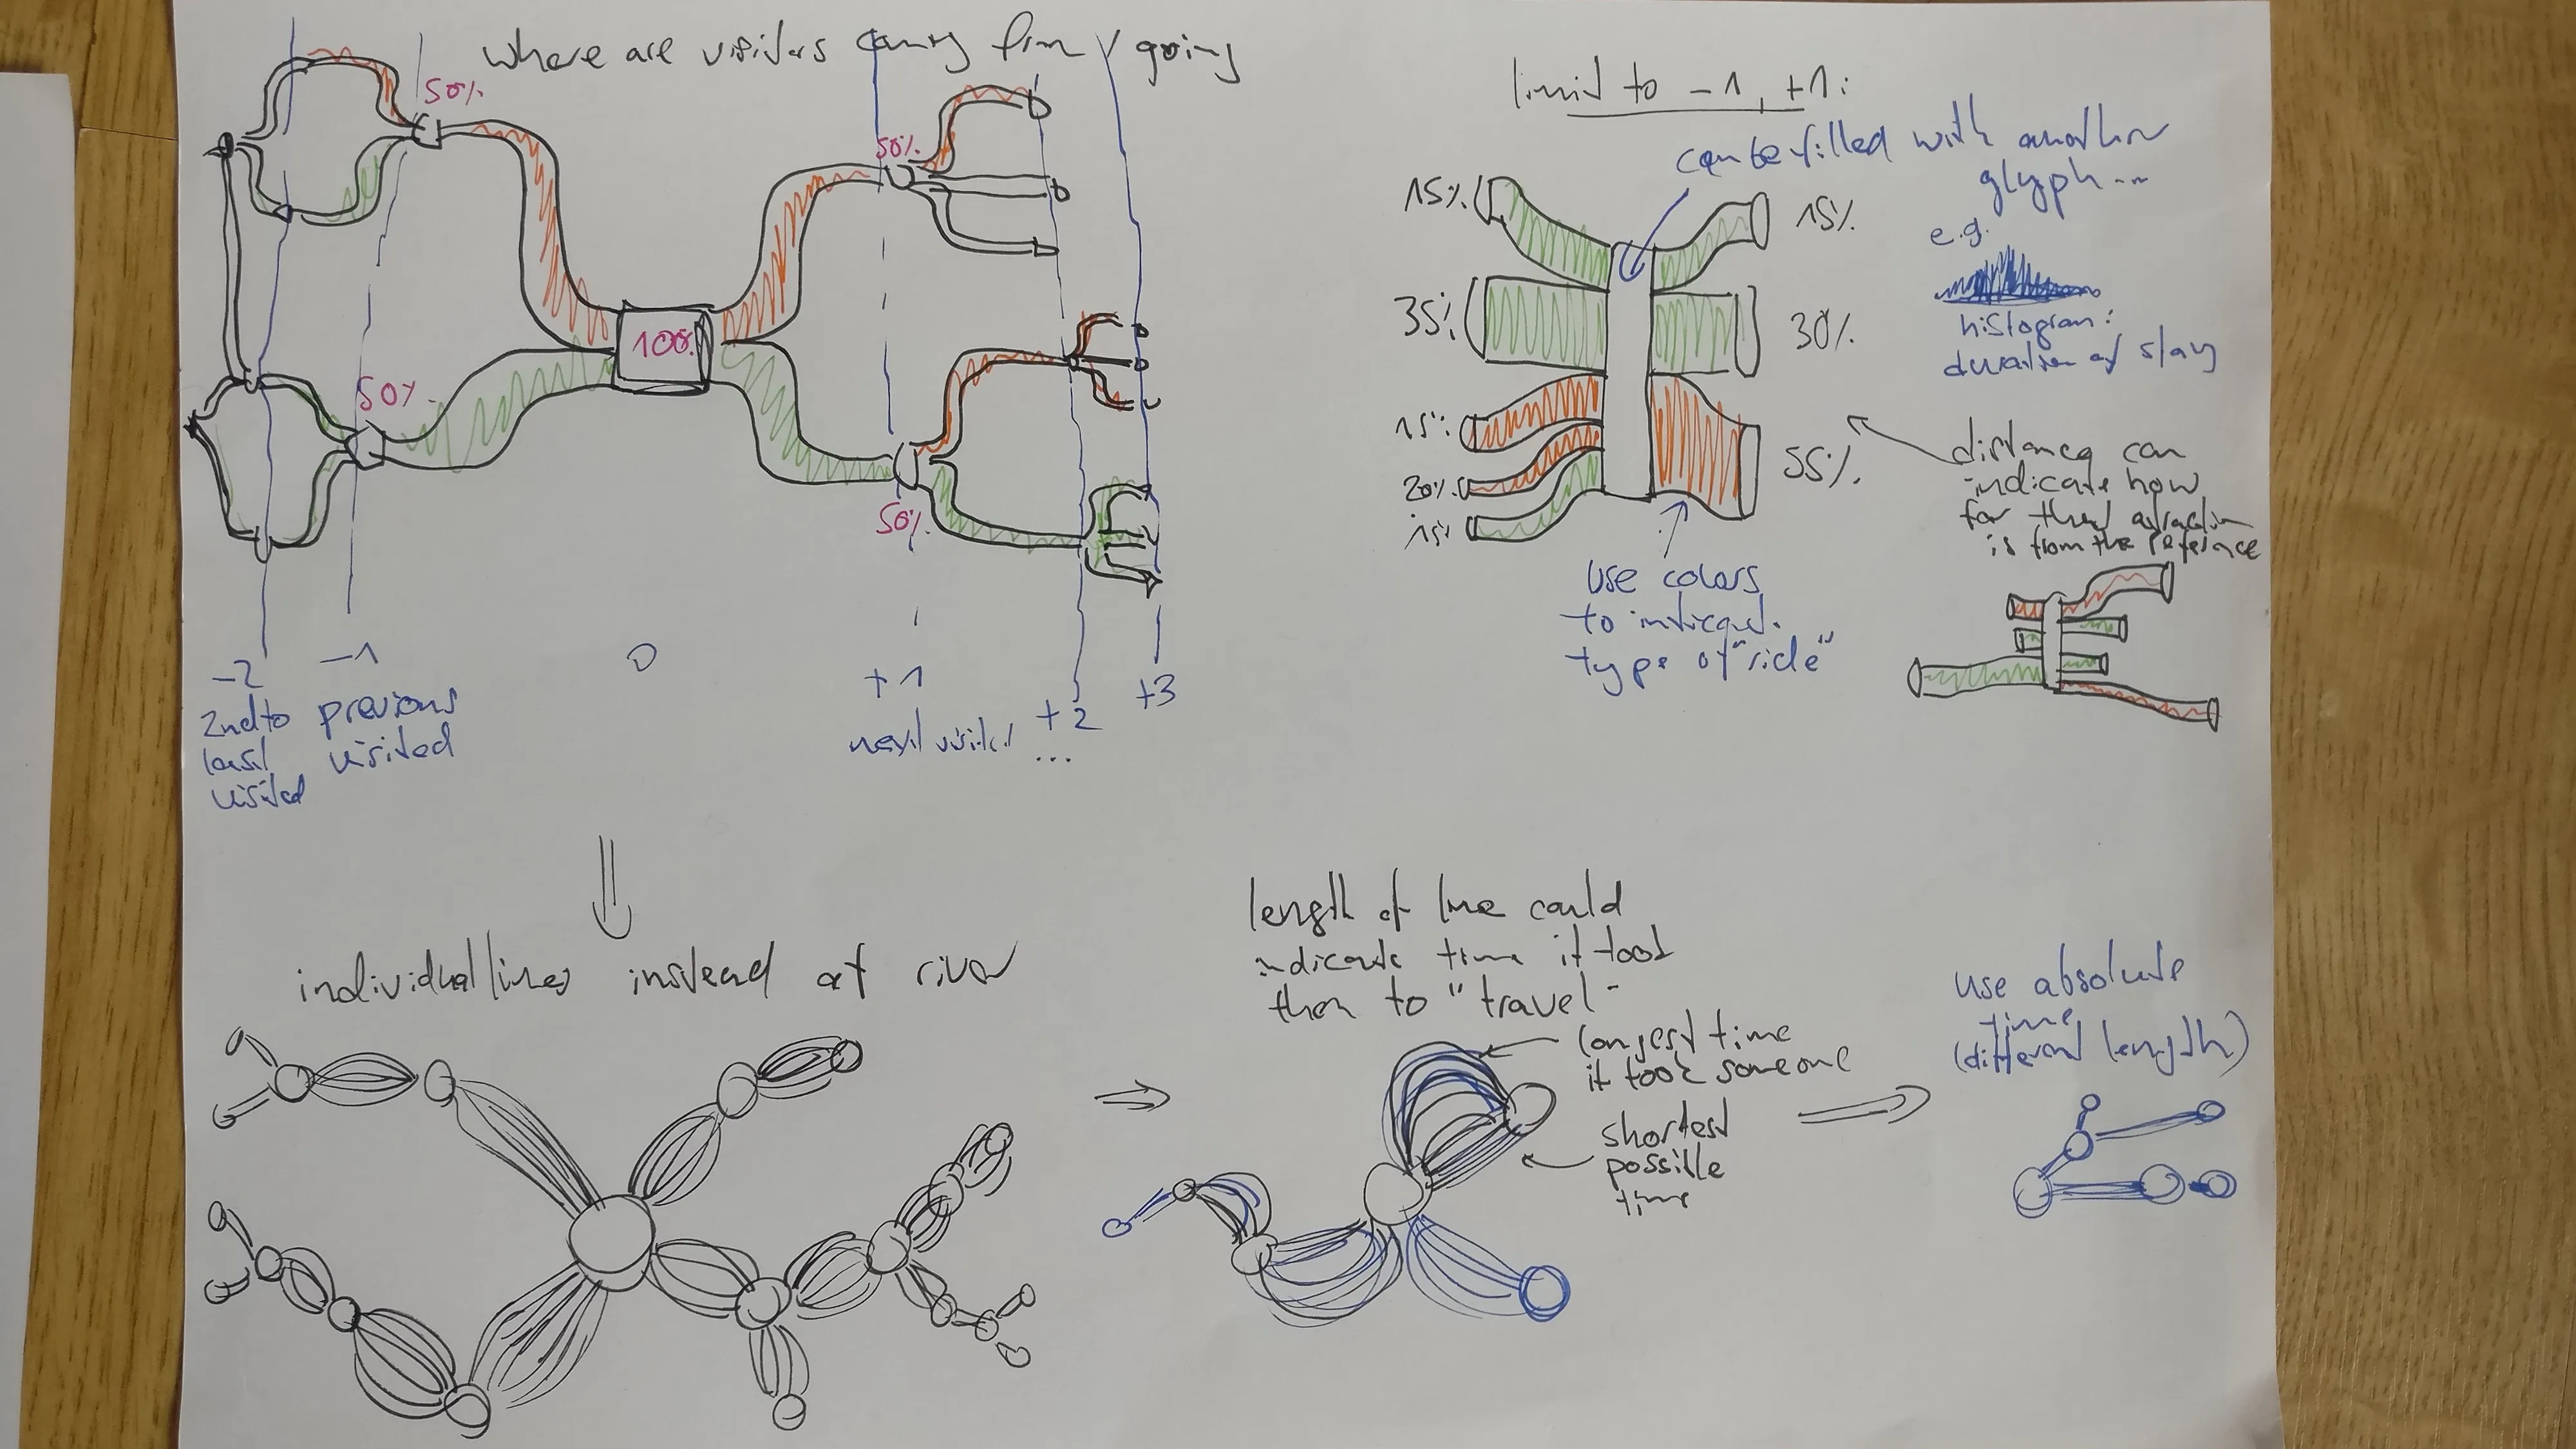 where are visitors coming from / going
50%
50%
100%
50%
50%
-2
2nd to
last
visited
-1
previous
visited
0
+1
next visited
+2
...
+3
limit to -1, +1:
can be filled with another
glyph...
e.g.
histogram:
duration of stay
15%
35%
15%
20%
15%
15%
30%
55%
distance can
indicate how
far
is from the reference
use colors
to indicate
type of "ride"
individual lines instead of river
length of line could
indicate time it took
them to "travel"
longest time
it took someone
shortest
possible
time
use absolute
time
(different length)